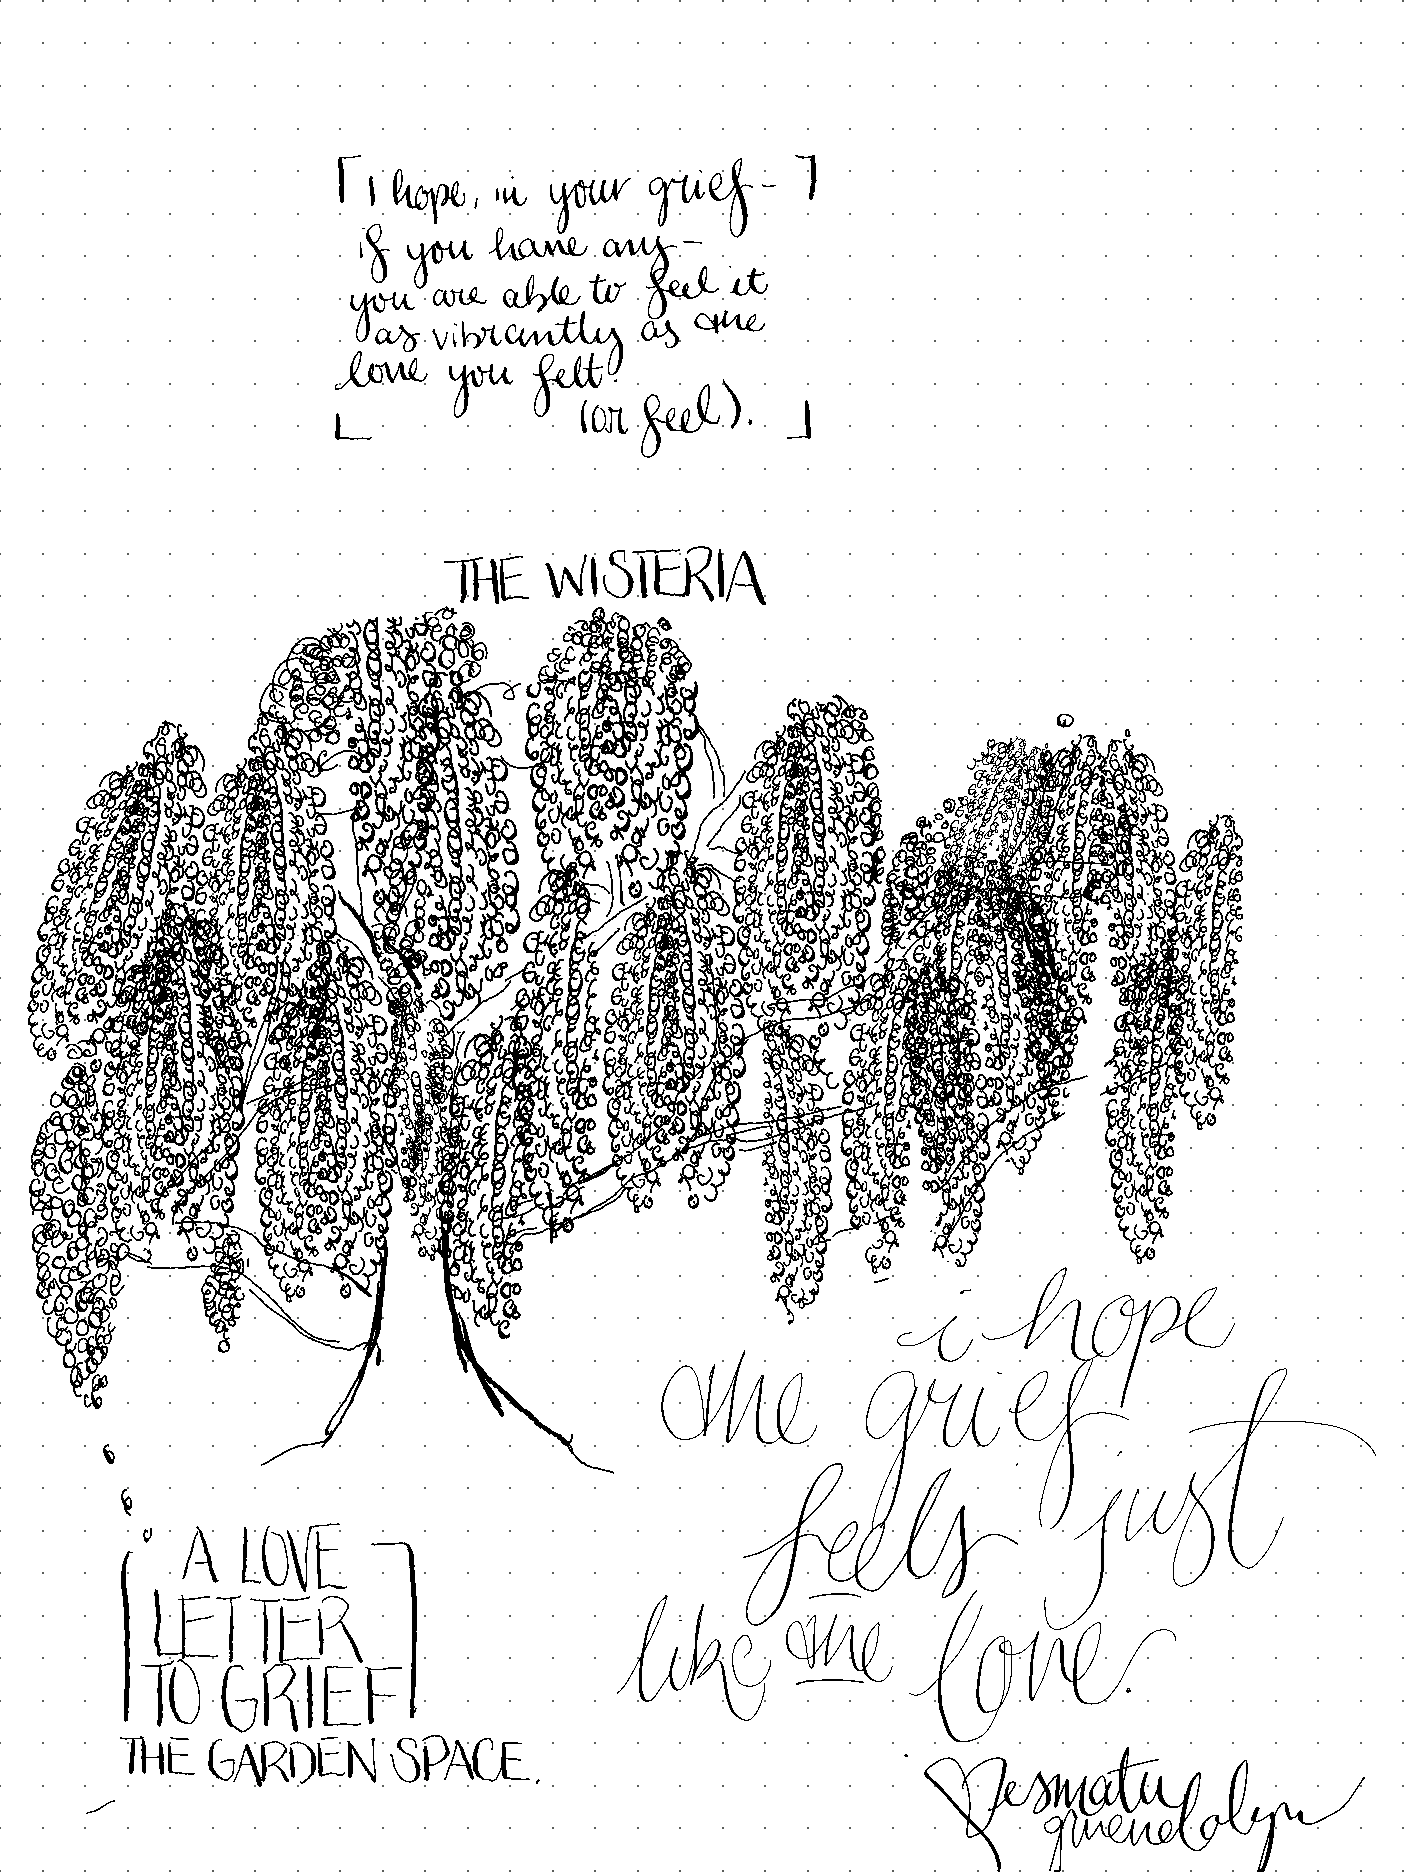 I hope, in your grief-
if you have any-
you are able to feel it
as vibrantly as the
love you felt
(or feel).
THE WISTERIA
i hope
the grief
feels just
like the love.
A LOVE
LETTER
TO GRIEF
THE GARDEN SPACE.
gwendolyn